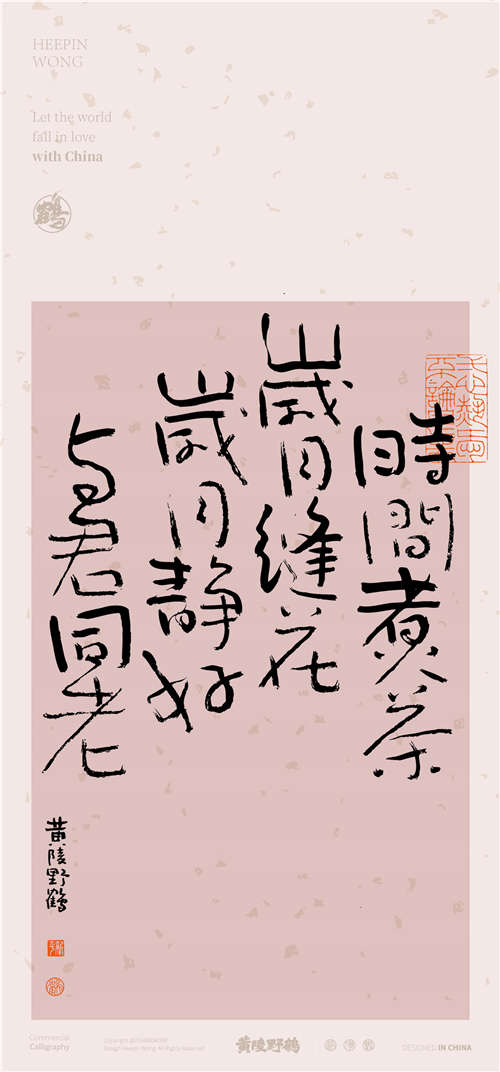 HEEPIN
WONG
Let the world
fall in love
with China
時間煮茶
歲月縫花
歲月静好
与君同老
黄陵野鶴
Commercial
Calligraphy
黄陵野鶴
DESIGNED IN CHINA